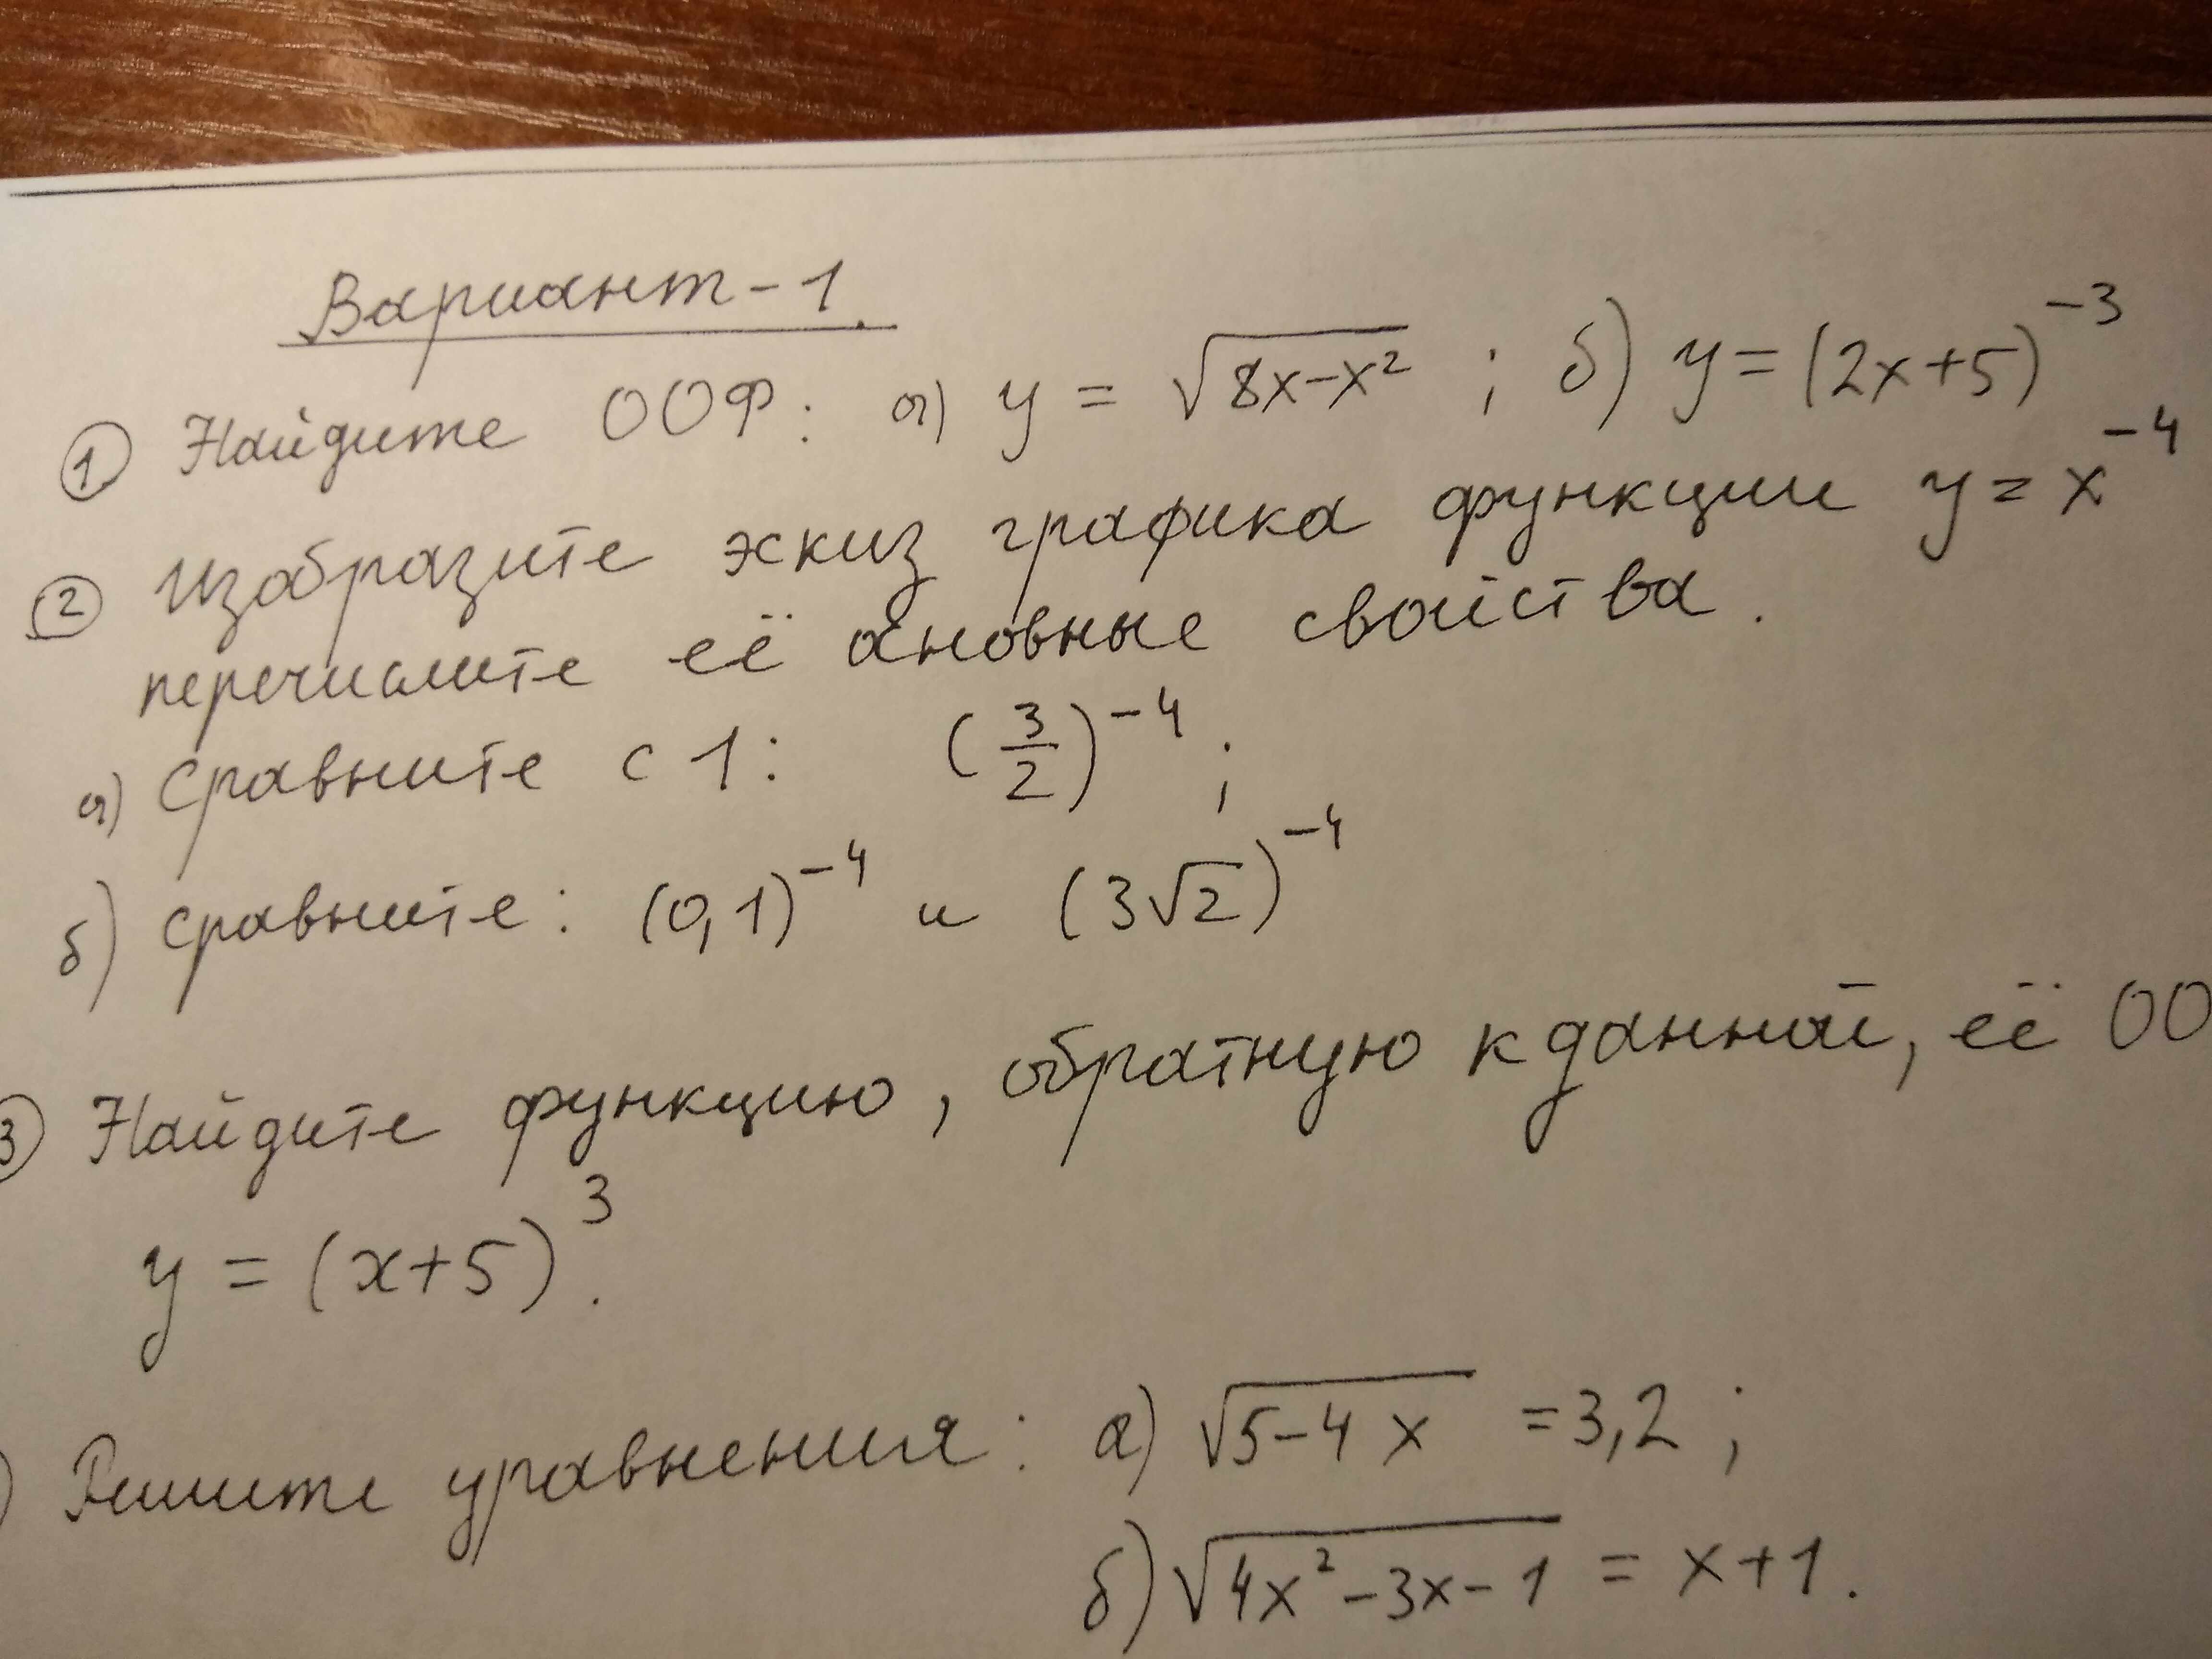 Вариант-1.
① Найдите ООФ: а) y = √(8x-x²) ; б) y = (2x+5)⁻³
② Изобразите эскиз графика функции y = x⁻⁴
перечислите её основные свойства.
а) Сравните с 1: (3/2)⁻⁴ ;
б) сравните: (0,1)⁻⁴ и (3√2)⁻⁴
③ Найдите функцию, обратную к данной, её ОО
y = (x+5)³.
) Решите уравнения: а) √(5-4x) = 3,2 ;
б) √(4x²-3x-1) = x+1.